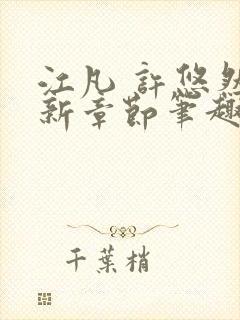 江凡 許悠然
新章節筆趣
千葉梢